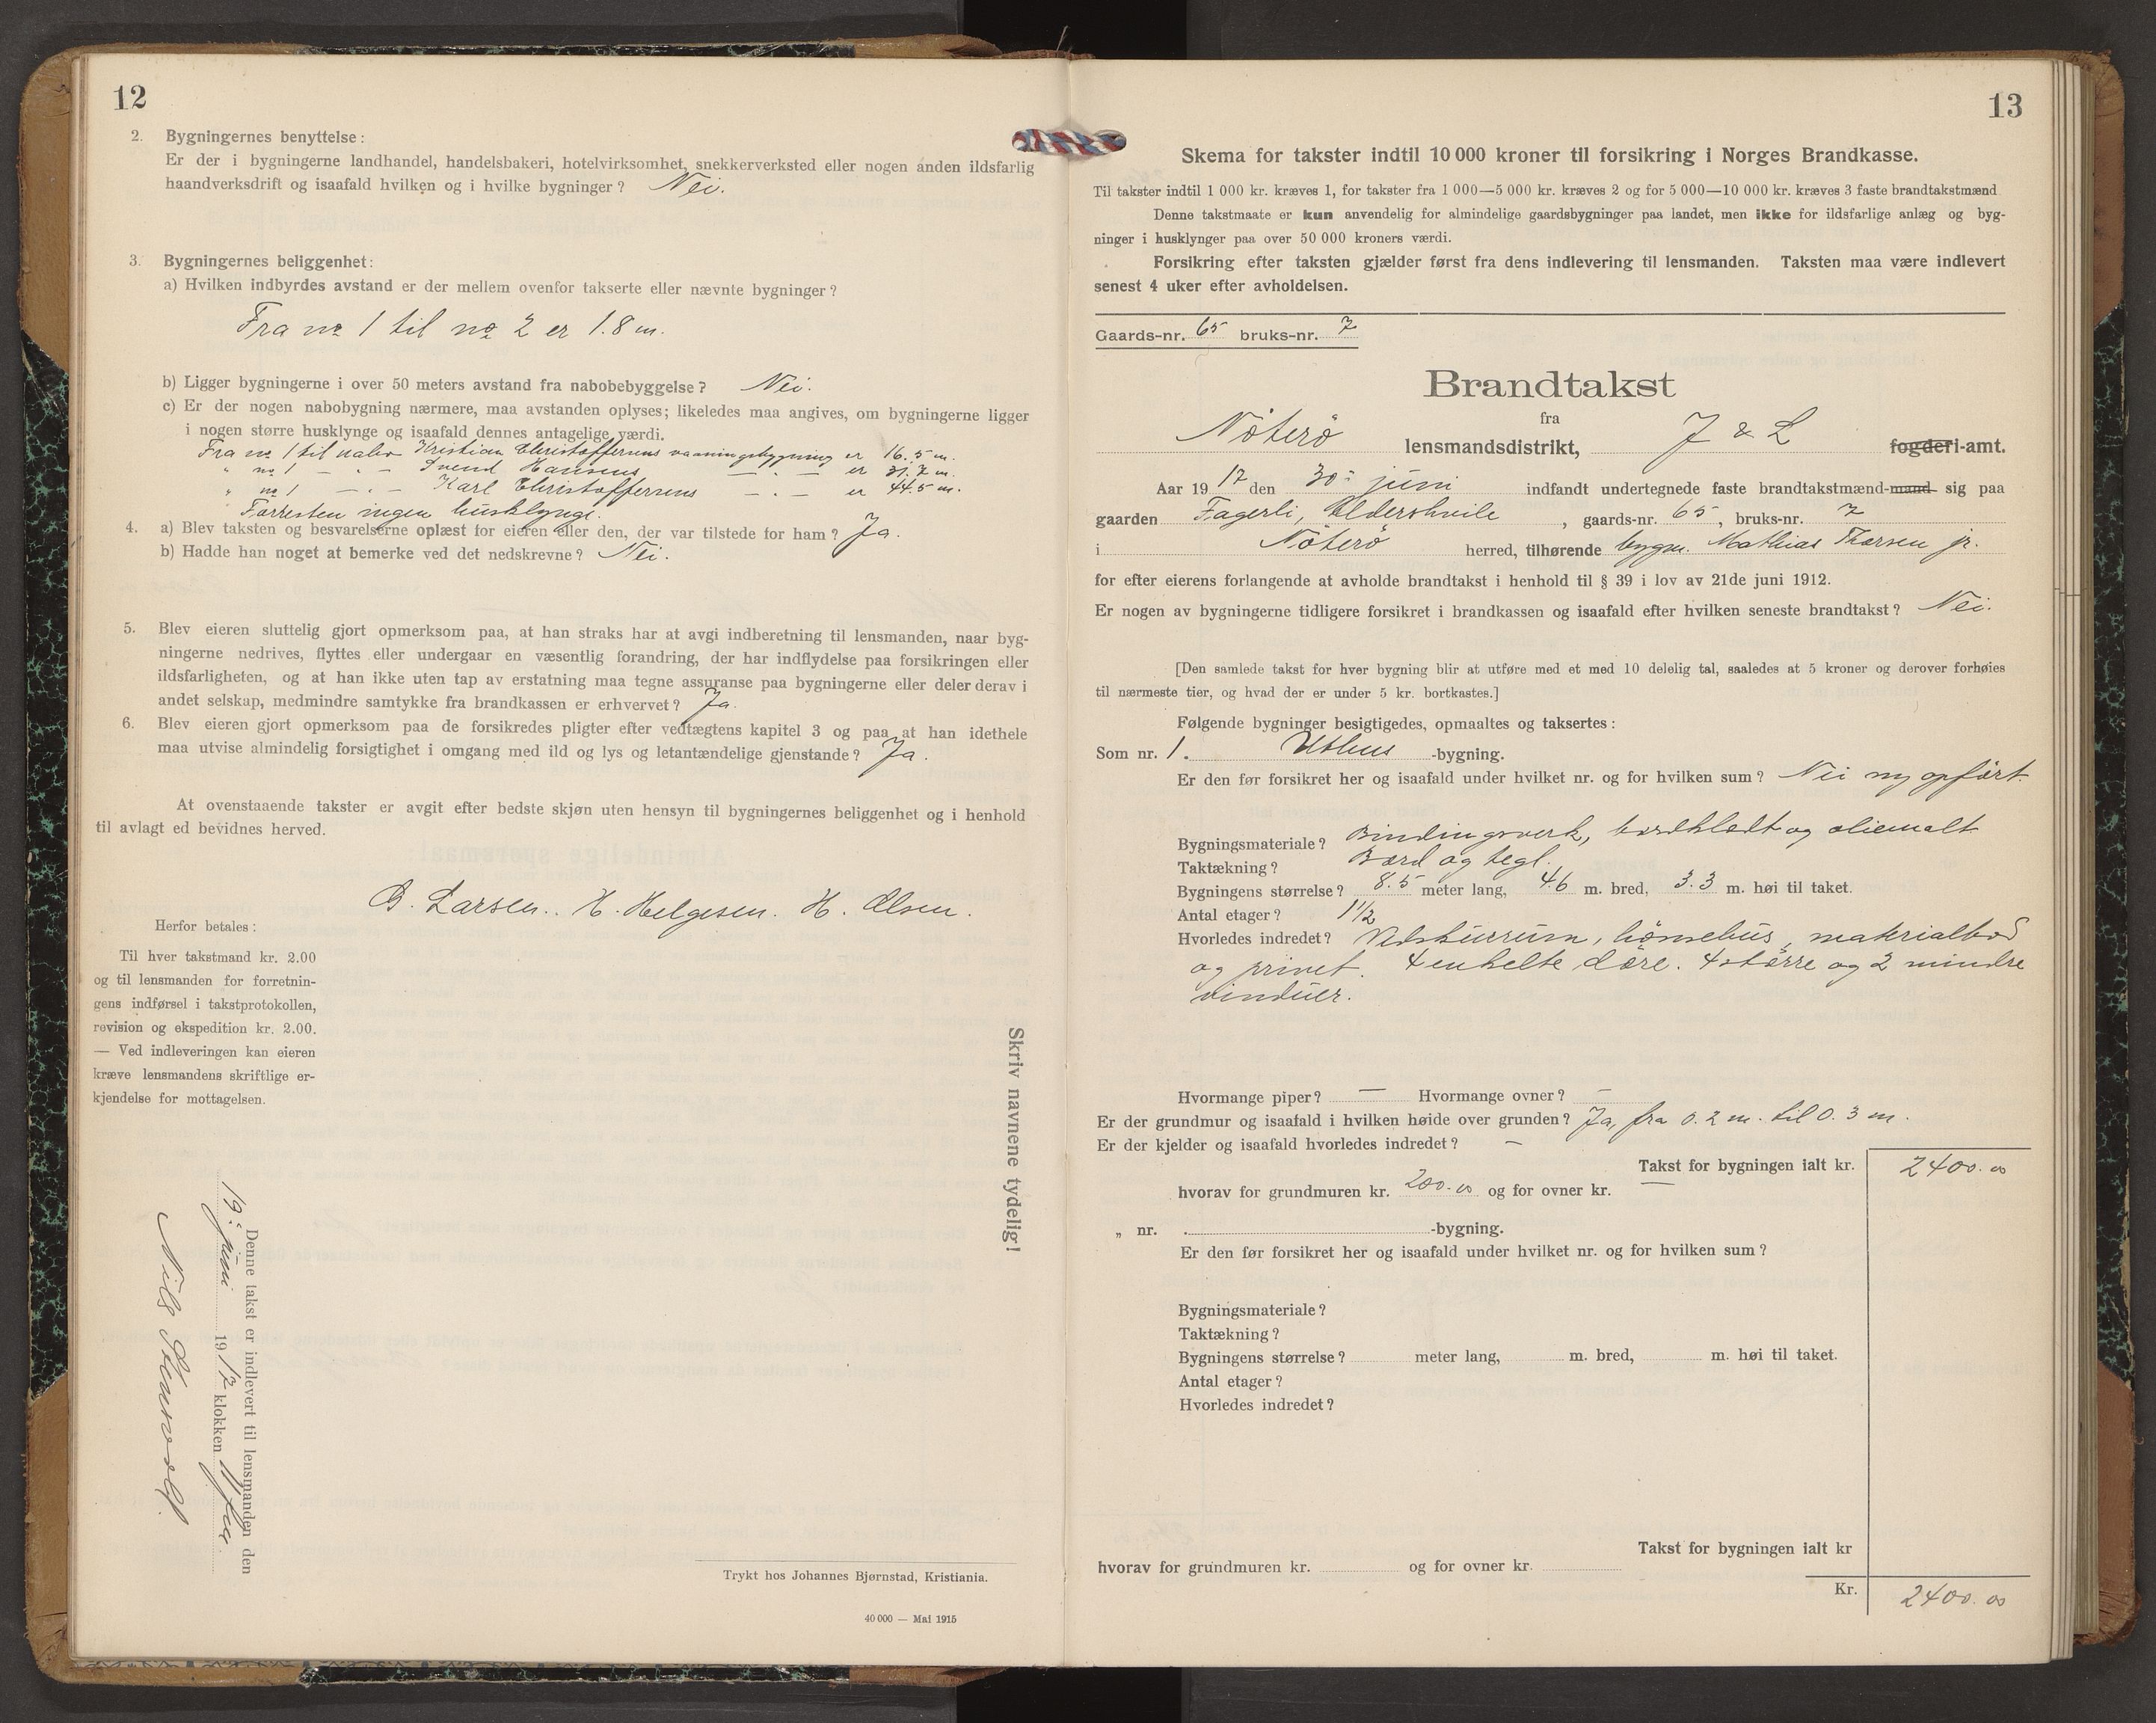 12
2. Bygningernes benyttelse:
Er der i bygningerne landhandel, handelsbakeri, hotelvirksomhet, snekkerverksted eller nogen anden ildsfarlig
haandverksdrift og isaafald hvilken og i hvilke bygninger? Nei.
3. Bygningernes beliggenhet:
a) Hvilken indbyrdes avstand er der mellem ovenfor takserte eller nævnte bygninger?
Fra no 1 til no 2 er 1.8 m.
b) Ligger bygningerne i over 50 meters avstand fra nabobebyggelse? Nei.
c) Er der nogen nabobygning nærmere, maa avstanden oplyses; likeledes maa angives, om bygningerne ligger
i nogen større husklynge og isaafald dennes antagelige værdi.
Fra no 1 til nabo Kristian Christoffersens vaaningsbygning er 16.5 m.
" no 1 - " - Svend Hansens - " - er 31.7 m.
" no 1 - " - Karl Christoffersens - " - er 44.5 m.
Forresten ingen husklynge.
4. a) Blev taksten og besvarelserne oplæst for eieren eller den, der var tilstede for ham? Ja.
b) Hadde han noget at bemerke ved det nedskrevne? Nei.
5. Blev eieren sluttelig gjort opmerksom paa, at han straks har at avgi indberetning til lensmanden, naar byg-
ningerne nedrives, flyttes eller undergaar en væsentlig forandring, der har indflydelse paa forsikringen eller
ildsfarligheten, og at han ikke uten tap av erstatning maa tegne assuranse paa bygningerne eller deler derav i
andet selskap, medmindre samtykke fra brandkassen er erhvervet? Ja.
6. Blev eieren gjort opmerksom paa de forsikredes pligter efter vedtægtens kapitel 3 og paa at han idethele
maa utvise almindelig forsigtighet i omgang med ild og lys og letantændelige gjenstande? Ja.
At ovenstaaende takster er avgit efter bedste skjøn uten hensyn til bygningernes beliggenhet og i henhold
til avlagt ed bevidnes herved.
G. Larsen. H. Helgesen. H. Olsen.
Herfor betales:
Til hver takstmand kr. 2.00
og til lensmanden for forretnin-
gens indførsel i takstprotokollen,
revision og ekspedition kr. 2.00.
— Ved indleveringen kan eieren
kræve lensmandens skriftlige er-
kjendelse for mottagelsen.
Skriv navnene tydelig!
Denne takst er indlevert til lensmanden den
19. juni 1917 klokken 11 fm.
Nils
Trykt hos Johannes Bjørnstad, Kristiania.
40 000 — Mai 1915
13
Skema for takster indtil 10 000 kroner til forsikring i Norges Brandkasse.
Til takster indtil 1 000 kr. kræves 1, for takster fra 1 000—5 000 kr. kræves 2 og for 5 000—10 000 kr. kræves 3 faste brandtakstmænd
Denne takstmaate er kun anvendelig for almindelige gaardsbygninger paa landet, men ikke for ildsfarlige anlæg og byg-
ninger i husklynger paa over 50 000 kroners værdi.
Forsikring efter taksten gjælder først fra dens indlevering til lensmanden. Taksten maa være indlevert
senest 4 uker efter avholdelsen.
Gaards-nr. 65 bruks-nr. 7
Brandtakst
fra
Nøterö lensmandsdistrikt, J & L fogderi-amt.
Aar 1917 den 30: juni indfandt undertegnede faste brandtakstmænd-mand sig paa
gaarden Fagerli, Eldershvile, gaards-nr. 65, bruks-nr. 7
i Nøterö herred, tilhørende bygm. Mathias Thorsen jr.
for efter eierens forlangende at avholde brandtakst i henhold til § 39 i lov av 21de juni 1912.
Er nogen av bygningerne tidligere forsikret i brandkassen og isaafald efter hvilken seneste brandtakst? Nei.
[Den samlede takst for hver bygning blir at utføre med et med 10 delelig tal, saaledes at 5 kroner og derover forhøies
til nærmeste tier, og hvad der er under 5 kr. bortkastes.]
Følgende bygninger besigtigedes, opmaaltes og taksertes:
Som nr. 1. Uthus -bygning.
Er den før forsikret her og isaafald under hvilket nr. og for hvilken sum? Nei ny opført.
Bygningsmateriale? Bindingsverk, bordklædt og oliemalt
Taktækning? Bord og tegl.
Bygningens størrelse? 8.5 meter lang, 4.6 m. bred, 3.3 m. høi til taket.
Antal etager? 1 1/2
Hvorledes indredet? Vedskurrum, hönsehus, materialbod
og privet. 4 enkelte döre. 4 större og 2 mindre
vinduer.
Hvormange piper? — Hvormange ovner? —
Er der grundmur og isaafald i hvilken høide over grunden? Ja, fra 0.2 m. til 0.3 m.
Er der kjelder og isaafald hvorledes indredet? —
Takst for bygningen ialt kr. 2400.00
hvorav for grundmuren kr. 200.00 og for ovner kr. —
„ nr. . -bygning.
Er den før forsikret her og isaafald under hvilket nr. og for hvilken sum?
Bygningsmateriale?
Taktækning?
Bygningens størrelse? meter lang, m. bred, m. høi til taket.
Antal etager?
Hvorledes indredet?
Takst for bygningen ialt kr
hvorav for grundmuren kr. og for ovner kr.
Kr. 2400.00